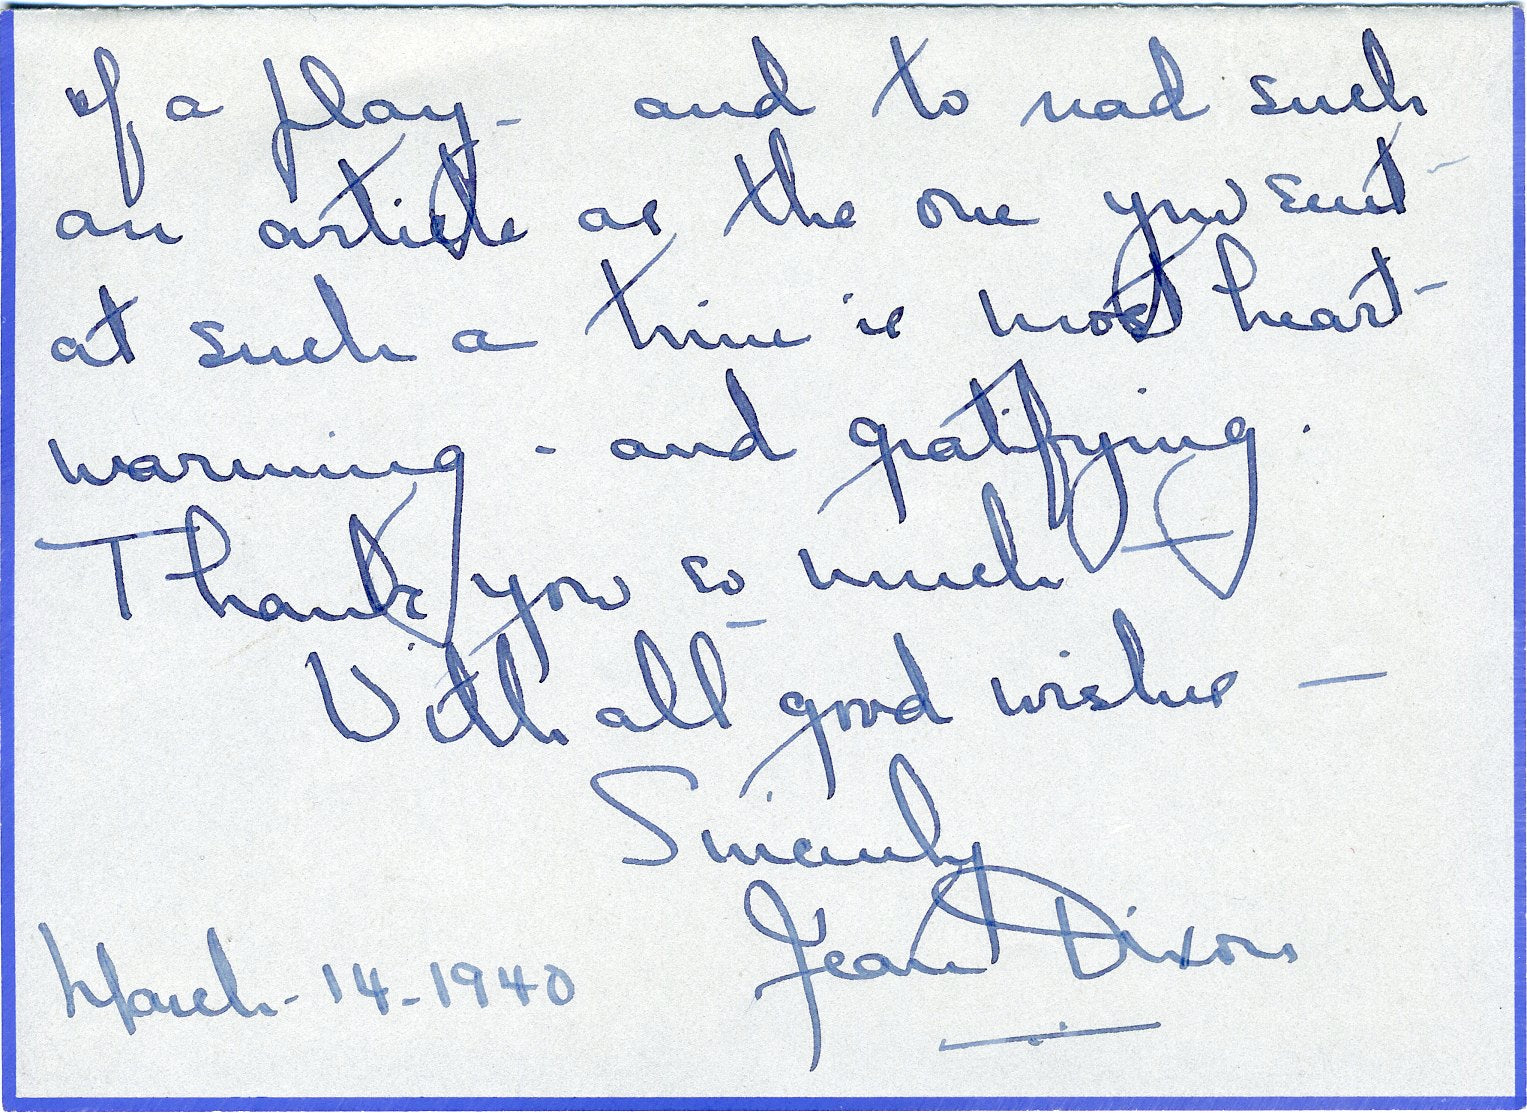 of a play - and to read such
an article as the one you sent -
at such a time is most heart-
warming - and gratifying.
Thank you so much -
With all good wishes -
Sincerely
Jean Dixon
March - 14 - 1940